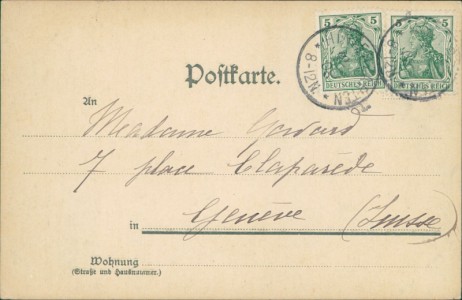 5 5
DEUTSCHES REICH DEUTSCHES REICH
8-12N. 8-12N.
Postkarte.
An
Madame
7 place Claparède
in Genève (Suisse)
Wohnung
(Straße und Hausnummer.)